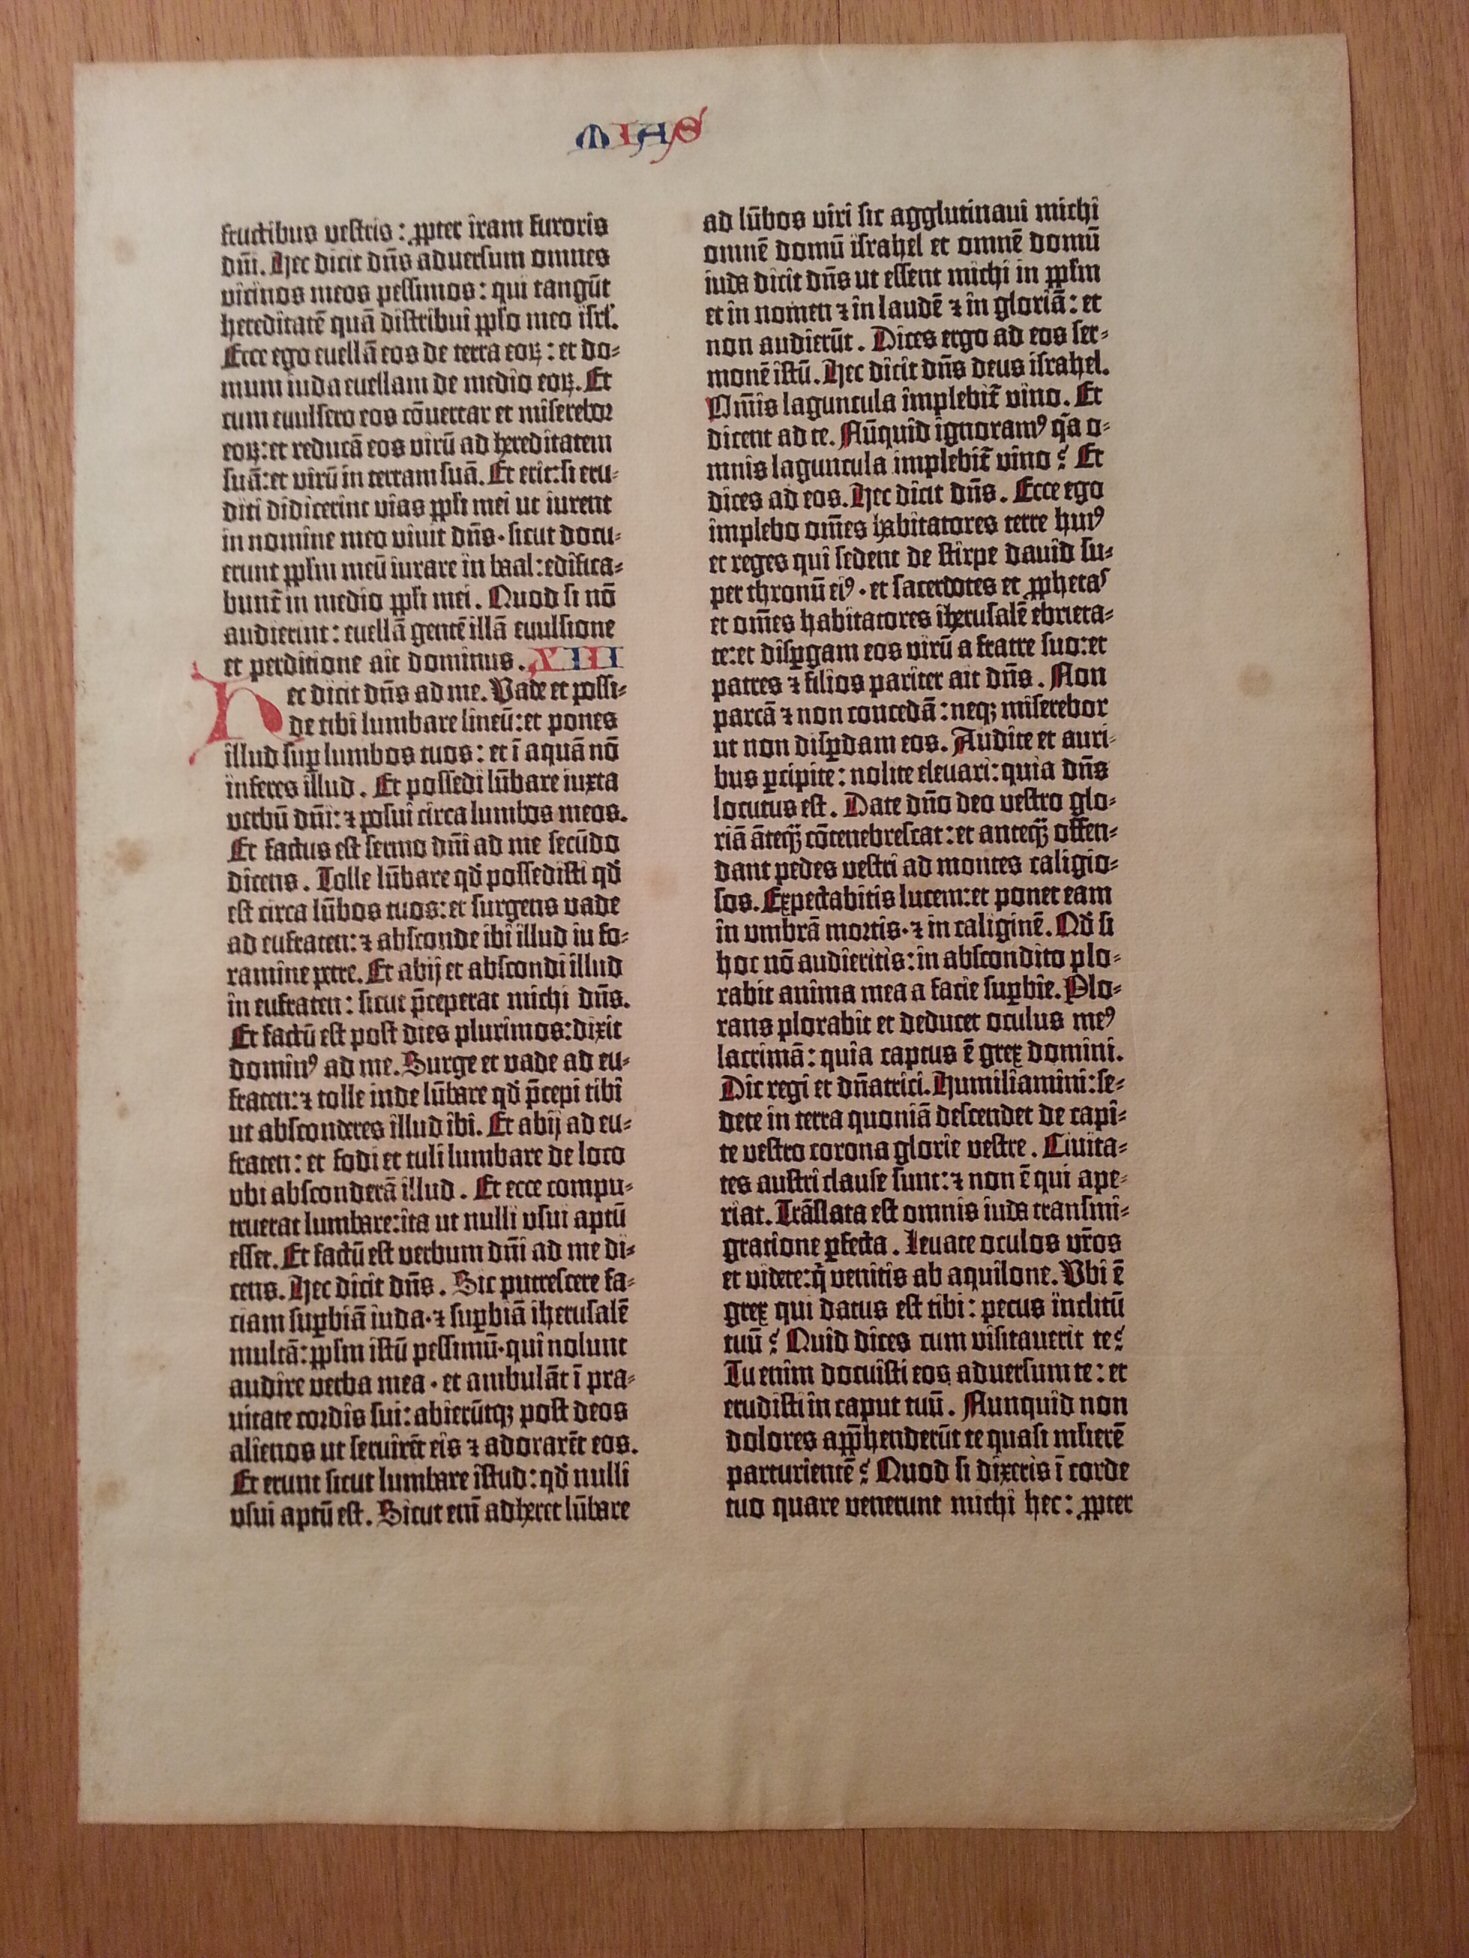 MIAS
fructibus vestris: ꝓpter iram furoris
dñi. Hec dicit dñs adversum omnes
vicinos meos pessimos: qui tangūt
hereditatē quā distribui ꝓplo meo isrl'.
Ecce ego evellā eos de terra eoꝝ: et do-
mum iuda evellam de medio eoꝝ. Et
cum evulsero eos cōvertar et miserebor
eoꝝ: et reducā eos virū ad hereditatem
suā: et virū in terram suā. Et erit: si eru-
diti didicerint vias ꝓpli mei ut iurent
in nomine meo vivit dñs · sicut docu-
erunt ꝓplm meū iurare in baal: edifica-
bunt̄ in medio ꝓpli mei. Quod si nō
audierint: evellā gentē illā evulsione
et perditione ait dominus. XIII
Hec dicit dñs ad me. Vade et possi-
de tibi lumbare lineū: et pones
illud suꝑ lumbos tuos: et ī aquā nō
inferes illud. Et possedi lūbare iuxta
verbū dñi: ⁊ posui circa lumbos meos.
Et factus est sermo dñi ad me secūdo
dicens. Tolle lūbare qđ possedisti qđ
est circa lūbos tuos: et surgens vade
ad eufraten: ⁊ absconde ibi illud in fo-
ramine petre. Et abij et abscondi illud
in eufraten: sicut p̄ceperat michi dñs.
Et factū est post dies plurimos: dixit
dominꝰ ad me. Surge et vade ad eu-
fraten: ⁊ tolle inde lūbare qđ p̄cepi tibi
ut absconderes illud ibi. Et abij ad eu-
fraten: et fodi et tuli lumbare de loco
ubi absconderā illud. Et ecce compu-
truerat lumbare: ita ut nulli usui aptū
esset. Et factū est verbum dñi ad me di-
cens. Hec dicit dñs. Sic putrescere fa-
ciam suꝑbiā iuda · ⁊ suꝑbiā iherusalē
multā: ꝓplm istū pessimū · qui nolunt
audire verba mea · et ambulāt ī pra-
vitate cordis sui: abierūtqꝫ post deos
alienos ut servirēt eis ⁊ adorarēt eos.
Et erunt sicut lumbare istud: qđ nulli
usui aptū est. Sicut enī adheret lūbare
ad lūbos viri sic agglutinavi michi
omnē domū israhel et omnē domū
iuda dicit dñs ut essent michi in ꝓplm
et in nomen ⁊ in laudē ⁊ in gloriā: et
non audierūt. Dices ergo ad eos ser-
monē istū. Hec dicit dñs deus israhel.
Om̄is laguncula implebit̄ vino. Et
dicent ad te. Nūquid ignoramꝰ q̄a o-
mnis laguncula implebit̄ vino? Et
dices ad eos. Hec dicit dñs. Ecce ego
implebo om̄es habitatores terre huiꝰ
et reges qui sedent de stirpe david su-
per thronū eiꝰ · et sacerdotes et ꝓphetas
et om̄es habitatores iherusalē ebrieta-
te: et disꝑgam eos virū a fratre suo: et
patres ⁊ filios pariter ait dñs. Non
parcā ⁊ non concedā: neqꝫ miserebor
ut non disꝑdam eos. Audite et auri-
bus ꝑcipite: nolite elevari: quia dñs
locutus est. Date dño deo vestro glo-
riā āteqꝫ̄ cōtenebrescat: et anteqꝫ̄ offen-
dant pedes vestri ad montes caligio-
sos. Expectabitis lucem: et ponet eam
in umbrā mortis · ⁊ in caliginē. Qđ si
hoc nō audieritis: in abscondito plo-
rabit anima mea a facie suꝑbie. Plo-
rans plorabit et deducet oculus meꝰ
lacrimā: quia captus ē grex domini.
Dic regi et dñatrici. Humiliamini: se-
dete in terra quoniā descendet de capi-
te vestro corona glorie vestre. Civita-
tes austri clause sunt: ⁊ non ē qui ape-
riat. Trāslata est omnis iuda transmi-
gratione ꝑfecta. Levate oculos vr̄os
et videte: q̇ venitis ab aquilone. Ubi ē
grex qui datus est tibi: pecus inclitū
tuū? Quid dices cum visitaverit te?
Tu enim docuisti eos adversum te: et
erudisti in caput tuū. Nunquid non
dolores app̄henderūt te quasi mlierē
parturientē? Quod si dixeris ī corde
tuo quare venerunt michi hec: ꝓpter